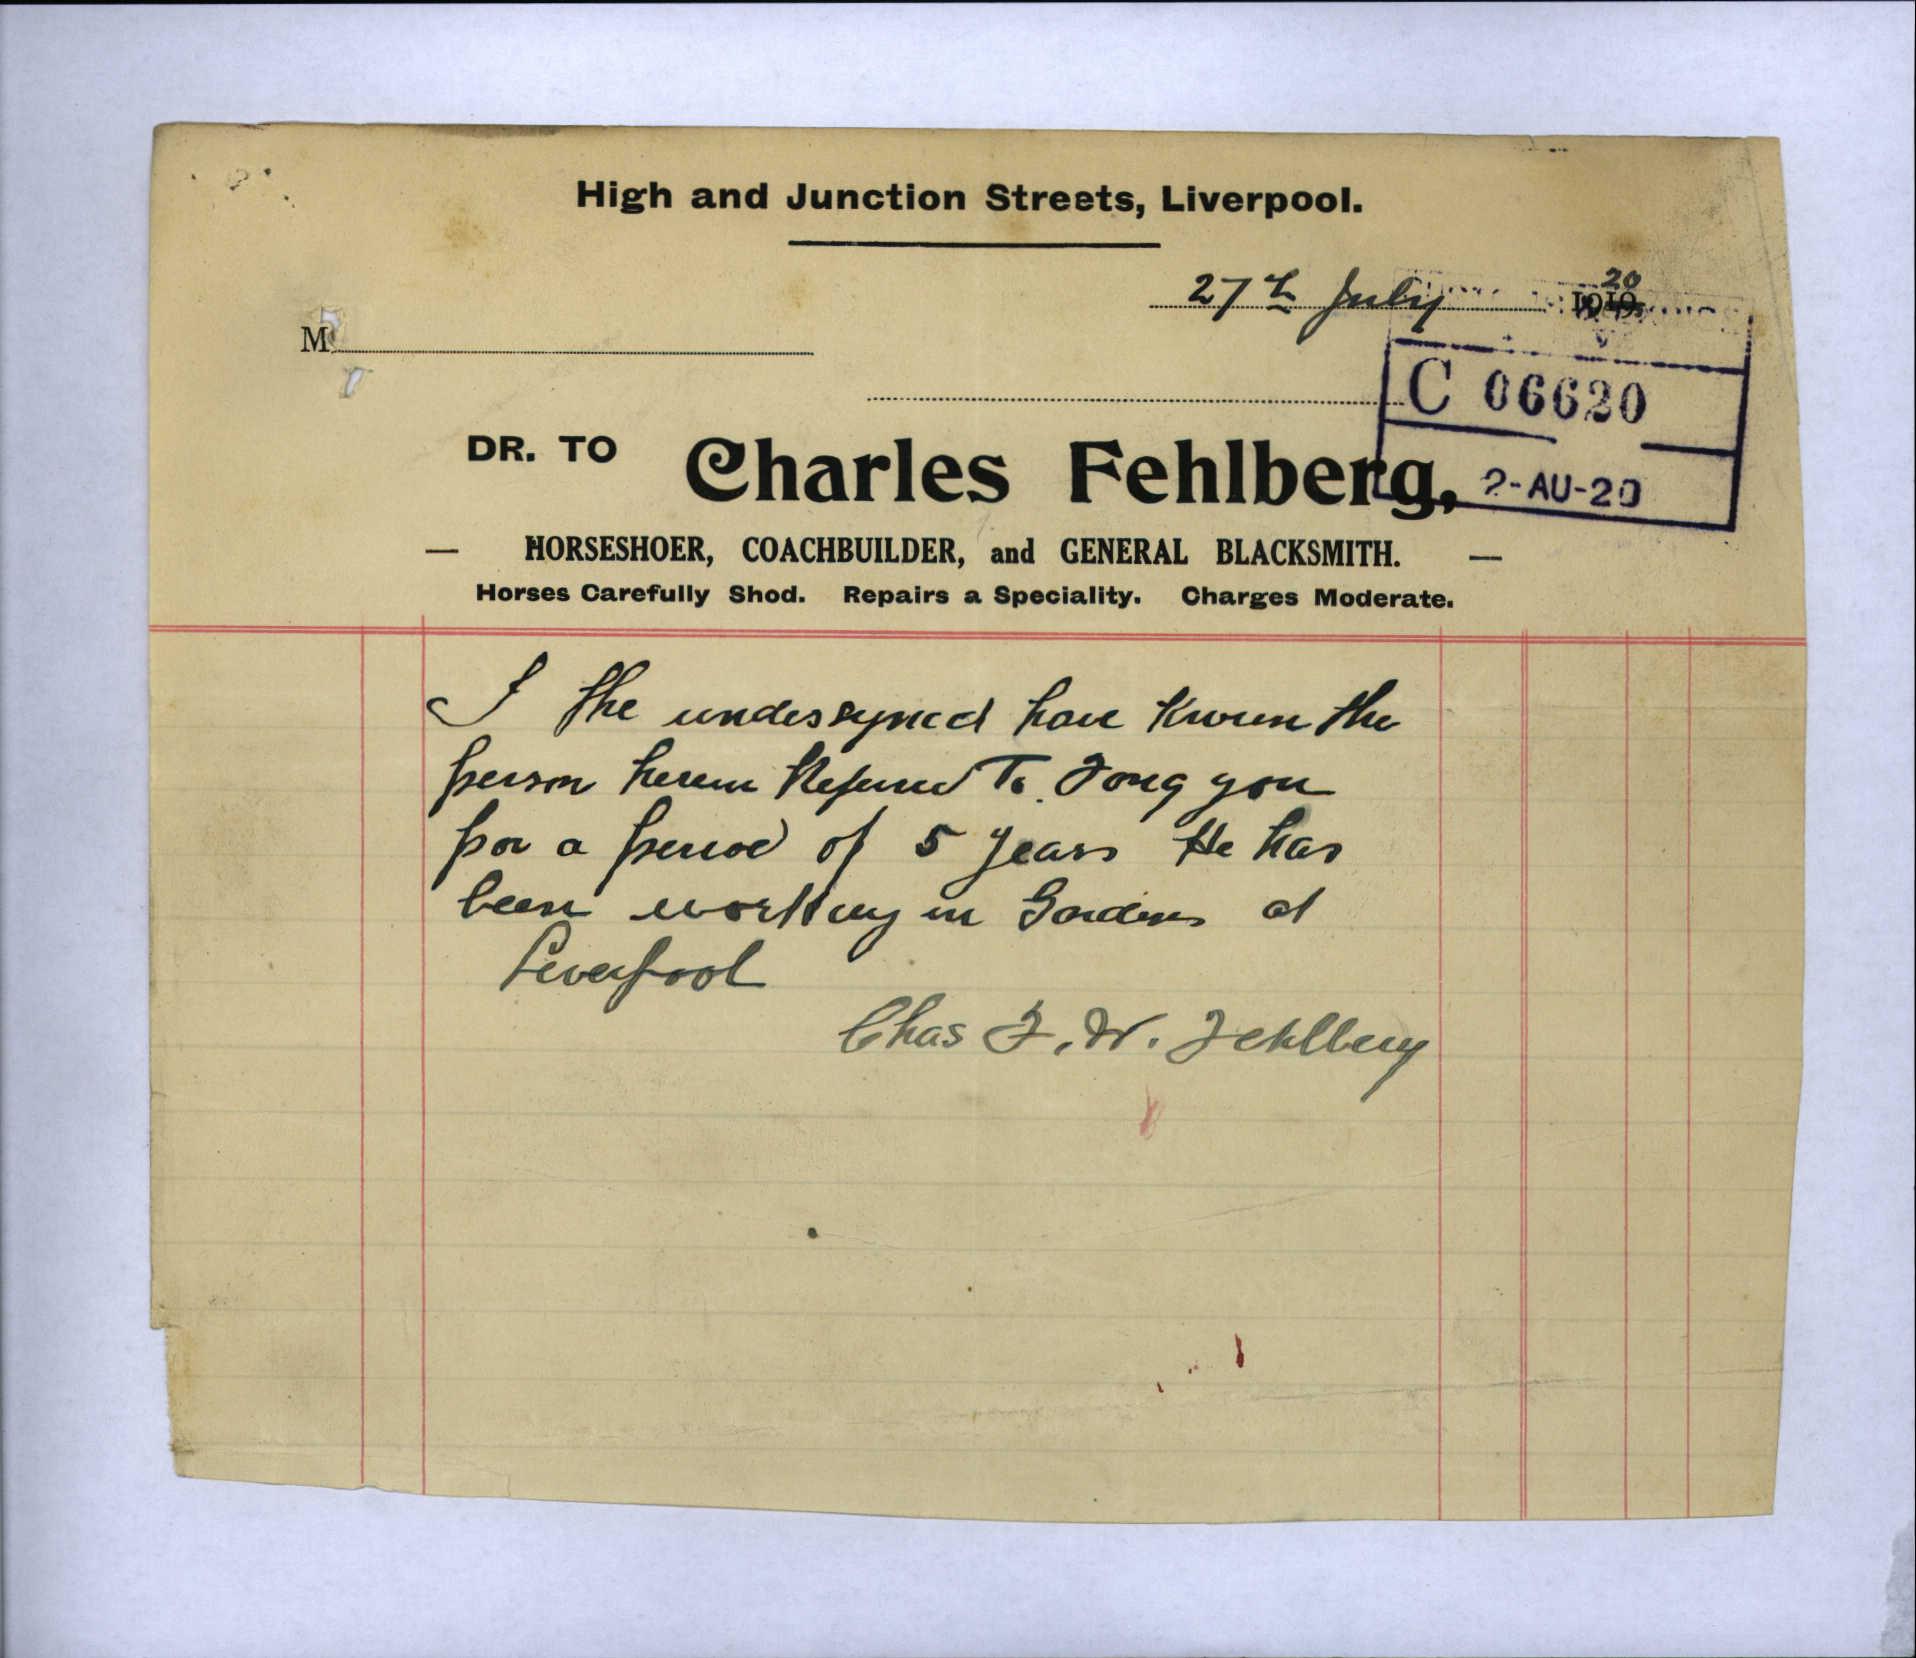 High and Junction Streets, Liverpool.
27th July 1919. 20
M
C 06620
DR. TO Charles Fehlberg,
2-AU-20
— HORSESHOER, COACHBUILDER, and GENERAL BLACKSMITH. —
Horses Carefully Shod. Repairs a Speciality. Charges Moderate.
I the undersigned have known the
person herein Refered To. Fong you
for a period of 5 years He has
been working in Gardens at
Liverpool
Chas F. W. Fehlberg